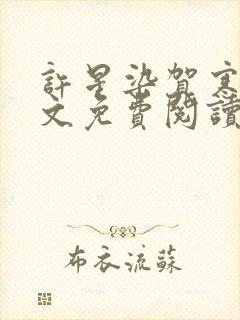 許星染賀寒
文免費閱讀
布衣流蘇